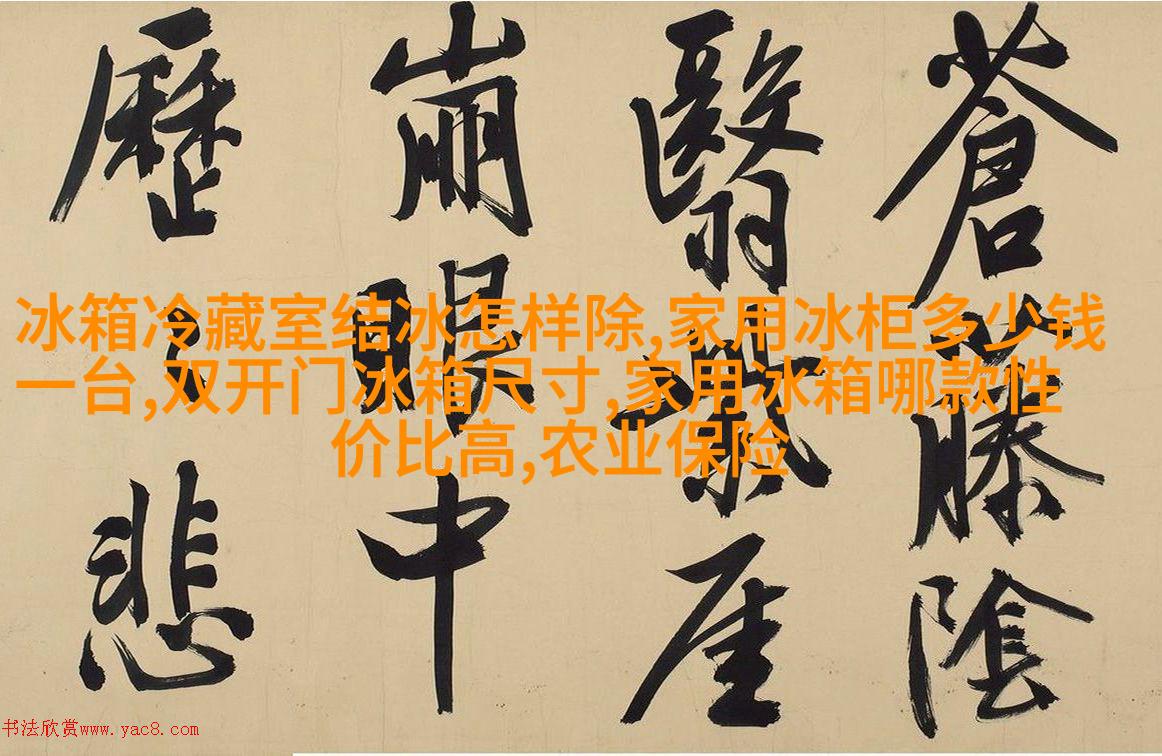 蒼藤陰
翳厓
崩眼中
歷悲
冰箱冷藏室结冰怎样除,家用冰柜多少钱
一台,双开门冰箱尺寸,家用冰箱哪款性
价比高,农业保险
书法欣赏www.yac8.com